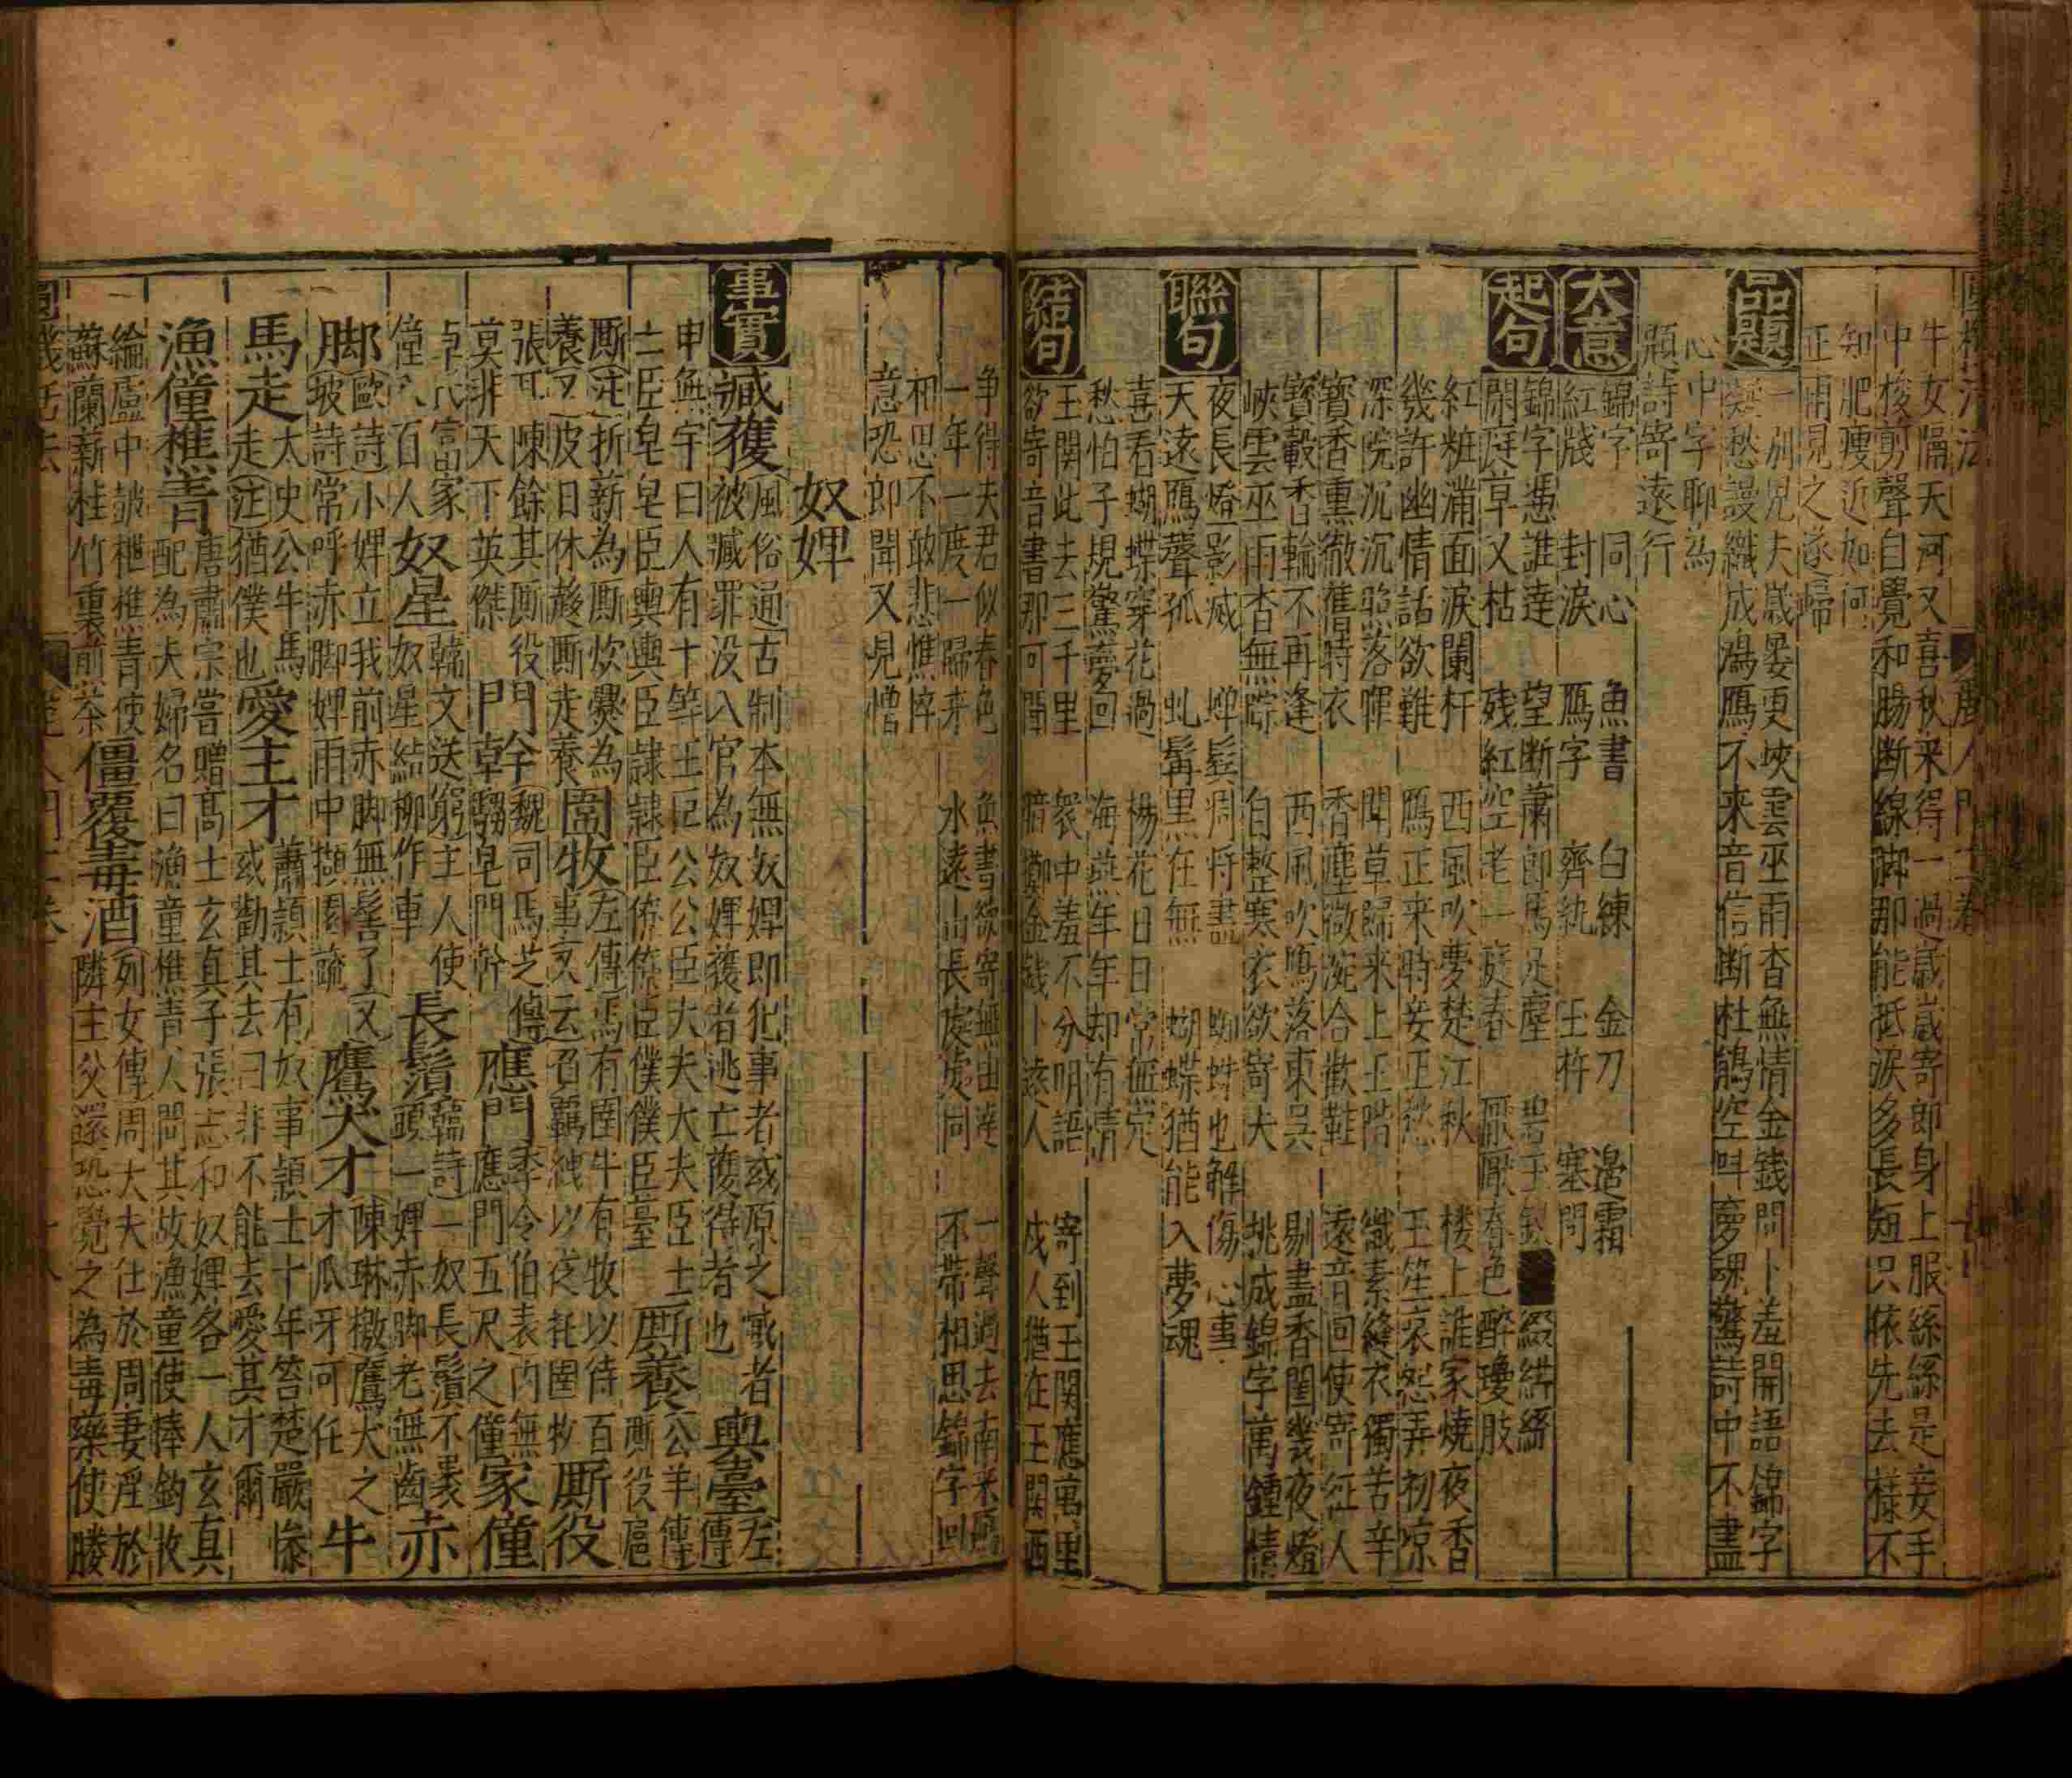 牛女隔天河又喜秋来得一過歲歲寄郎身上服絲絲是妾手
中梭剪聲自覺和腸断線脚那能抵淚多長短只依先去樣不
知肥瘦近如何
正用見之遂歸
品題
一別兄夫歲晏更峽雲巫雨杳無情金錢問卜羞開語錦字
愁謾織成鴻鴈不来音信断杜鵑空呌夢魂驚詩中不盡
心中字聊為
題詩寄遠行
大意
錦字　同心　魚書　白練　金刀　邉霜
紅牋　封淚　鴈字　齊紈　玉杵　塞門
起句
錦字慿誰逹　望断蕭郎馬足塵
閑庭草又枯　残紅空老一庭春　厭厭春色醉瓊肢
紅粧滿面淚闌杆　西風吹夢楚江秋　楼上誰家燒夜香
幾許幽情話欲難　鴈正来時妾正愁　玉笙哀怨弄初凉
深院沉沉照落暉　閑草歸来上玉階　纖素縫衣獨苦辛
寳香熏徹舊時衣　香塵微涴合歡鞋　遠音回使寄征人
寳轂香輪不再逢　西風吹鴈落東吳　剔盡香閨幾夜燈
峽雲巫雨杳無蹤　自整寒衣欲寄夫　挑成錦字萬鍾情
聯句
夜長燈影滅　蟬鬂凋将盡　蜘蛛也解傷心事
天遠鴈聲孤　虬髯黒在無　蝴蝶猶能入夢魂
喜看蝴蝶穿花過　楊花日日常無定
愁怕子規驚夢回　海燕年年却有情
結句
玉関此去三千里　衆中羞不分明語　寄到玉関應萬里
欲寄音書那可聞　暗擲金錢卜遠人　戍人猶在玉関西
争得夫君似春色　魚書欲寄無由逹　一聲過去南来鴈
一年一度一歸来　水遠山長處處同　不帶相思錦字回
相思不敢悲憔悴
意恐郎聞又見憎
奴婢
事實
臧獲（風俗通）古制本無奴婢即犯事者或原之臧者
被臧罪没入官為奴婢獲者逃亡獲得者也輿臺（左傳
申無宇曰人有十等王臣公公臣大夫大夫臣士
士臣皂皂臣輿輿臣隷隷臣僚僚臣僕僕臣臺厮養（公羊傳
厮（注）折薪為厮炊爨為
養又（皮日休）厮走養圉牧（左傳）馬有圉牛有牧以待百
事（又云）臣羈絏以從扞圉牧厮役
張耳陳餘其厮役
莫非天下英傑門幹（魏司馬芝傳
騶皂門幹應門李令伯表内無
應門五尺之僮家僮
卓氏富出家
僮八百人奴星韓文送窮主人使
奴星結柳作車長鬚韓詩一奴長鬚不裹
頭一婢赤脚老無齒赤
脚（歐詩）小婢立我前赤脚無髻了（又
坡詩）常呼赤脚婢雨中擷園蔬鷹犬才（陳琳檄）鷹犬之
才爪牙可任牛
馬走太史公牛馬
走（注）猶僕也愛主才蕭穎士有奴事穎士十年笞楚嚴慘
或勸其去曰非不能去愛其才爾
漁僮樵青唐肅宗嘗贈高士玄真子張志和奴婢各一人玄真
配為夫婦名曰漁童樵青人問其故漁童使棒釣收
綸盧中鼓枻樵青使
蘇蘭薪桂竹裏煎茶僵覆毒酒（列女傳）周大夫仕於周妻淫於
隣主父還恐覺之為毒藥使媵